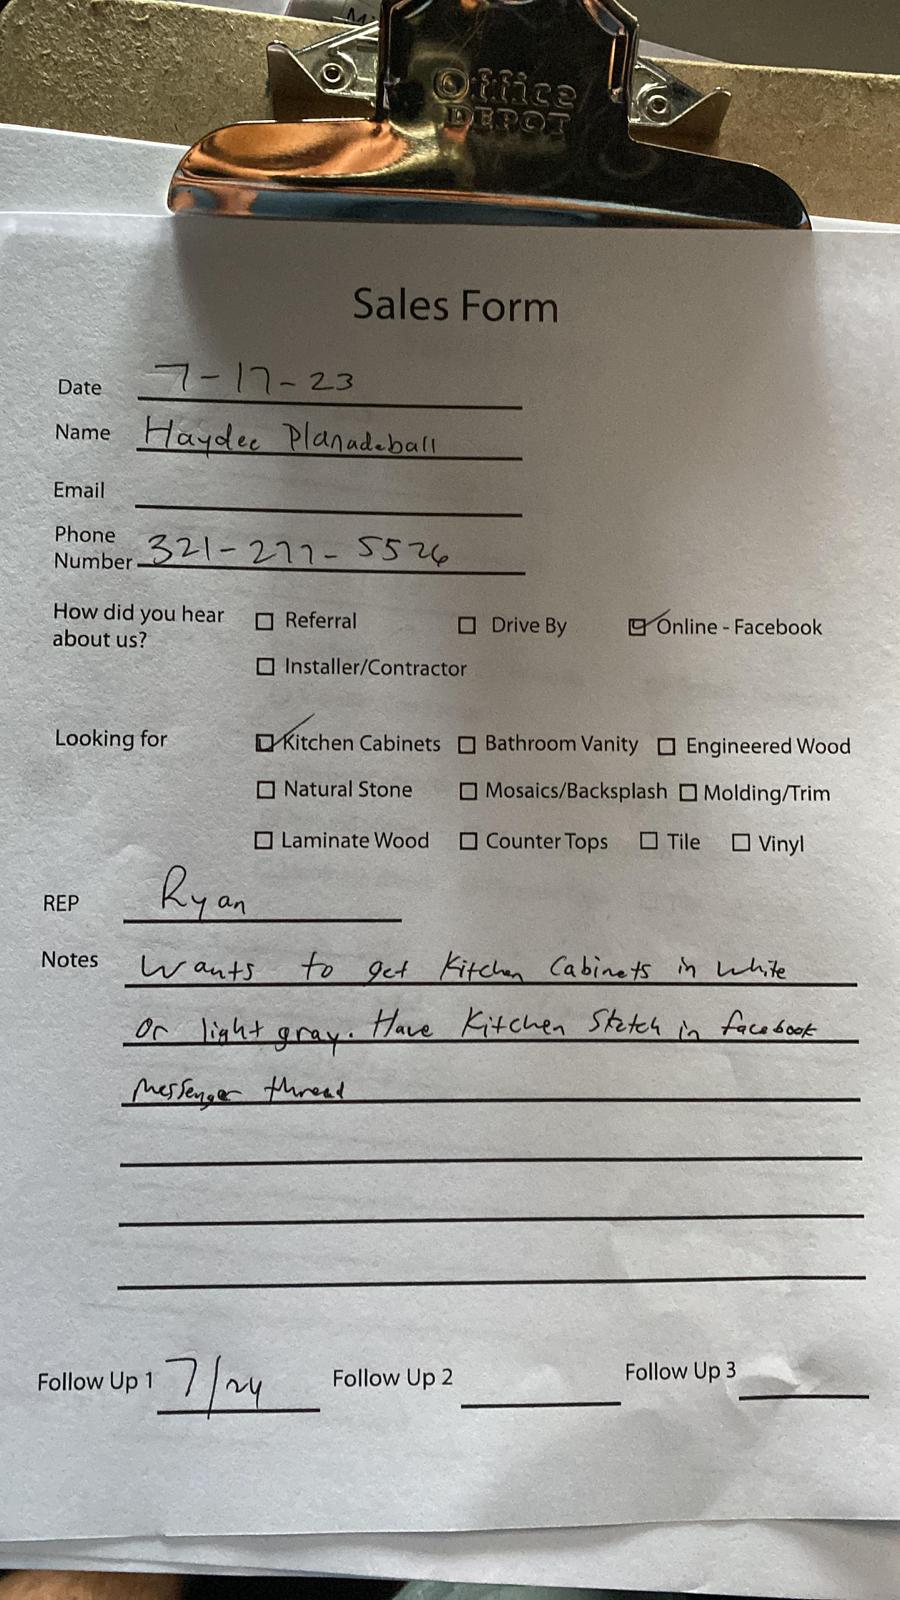 Office
DEPOT
Sales Form
Date 7-17-23
Name Haydee Planadeball
Email
Phone
Number 321-277-5526
How did you hear about us?
☐ Referral ☐ Drive By ☑ Online - Facebook
☐ Installer/Contractor
Looking for ☑ Kitchen Cabinets ☐ Bathroom Vanity ☐ Engineered Wood
☐ Natural Stone ☐ Mosaics/Backsplash ☐ Molding/Trim
☐ Laminate Wood ☐ Counter Tops ☐ Tile ☐ Vinyl
REP Ryan
Notes Wants to get Kitchen Cabinets in white
or light gray. Have Kitchen Sketch in facebook
messenger thread
Follow Up 1 7/24 Follow Up 2 Follow Up 3